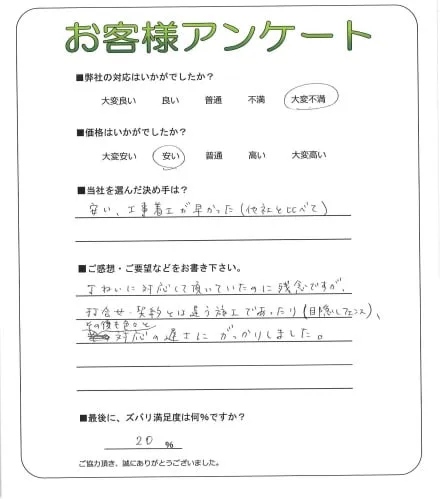 お客様アンケート
■弊社の対応はいかがでしたか？
大変良い 良い 普通 不満 大変不満
■価格はいかがでしたか？
大変安い 安い 普通 高い 大変高い
■当社を選んだ決め手は？
安い、工事着工が早かった(他社と比べて)
■ご感想・ご要望などをお書き下さい。
丁ねいに対応して頂いていたのに残念ですが、
打合せ・契約とは違う施工であったり(目隠しフェンス)、
その後も色々と
対応の遅さにがっかりしました。
■最後に、ズバリ満足度は何%ですか？
20 %
ご協力頂き、誠にありがとうございました。